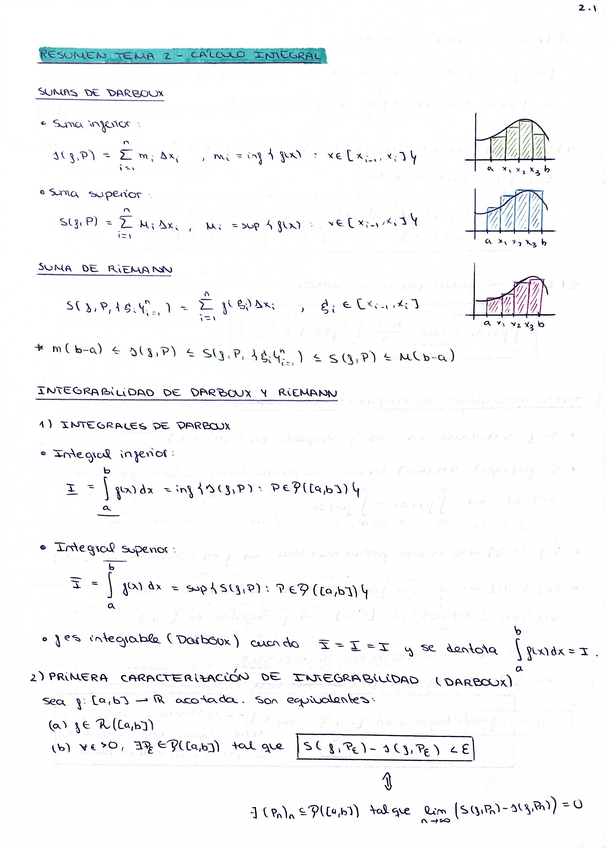 2.1
RESUMEN TEMA 2 - CÁLCULO INTEGRAL
SUMAS DE DARBOUX
• Suma inferior:
s(f,P) = ∑_{i=1}^{n} m_i Δx_i , m_i = inf { f(x) : x ∈ [x_{i-1}, x_i] }
a x₁ x₂ x₃ b
• Suma superior:
S(f,P) = ∑_{i=1}^{n} M_i Δx_i , M_i = sup { f(x) : x ∈ [x_{i-1}, x_i] }
a x₁ x₂ x₃ b
SUMA DE RIEMANN
S(f, P, {ξ_i}_{i=1}^{n}) = ∑_{i=1}^{n} f(ξ_i) Δx_i , ξ_i ∈ [x_{i-1}, x_i]
a x₁ x₂ x₃ b
* m(b-a) ≤ s(f,P) ≤ S(f, P, {ξ_i}_{i=1}^{n}) ≤ S(f,P) ≤ M(b-a)
INTEGRABILIDAD DE DARBOUX Y RIEMANN
1) INTEGRALES DE DARBOUX
• Integral inferior:
I̲ = ∫_a^b f(x) dx = inf { s(f,P) : P ∈ 𝒫([a,b]) }
• Integral superior:
I̅ = ∫_a^b f(x) dx = sup { S(f,P) : P ∈ 𝒫([a,b]) }
• f es integrable (Darboux) cuando I̅ = I̲ = I y se denota ∫_a^b f(x) dx = I.
2) PRIMERA CARACTERIZACIÓN DE INTEGRABILIDAD (DARBOUX)
sea f: [a,b] → ℝ acotada. Son equivalentes:
(a) f ∈ ℛ([a,b])
(b) ∀ε>0, ∃P_ε ∈ 𝒫([a,b]) tal que S(f, P_ε) - s(f, P_ε) < ε
⇕
∃ (P_n)_n ⊆ 𝒫([a,b]) tal que lim_{n→∞} (S(f,P_n) - s(f,P_n)) = 0